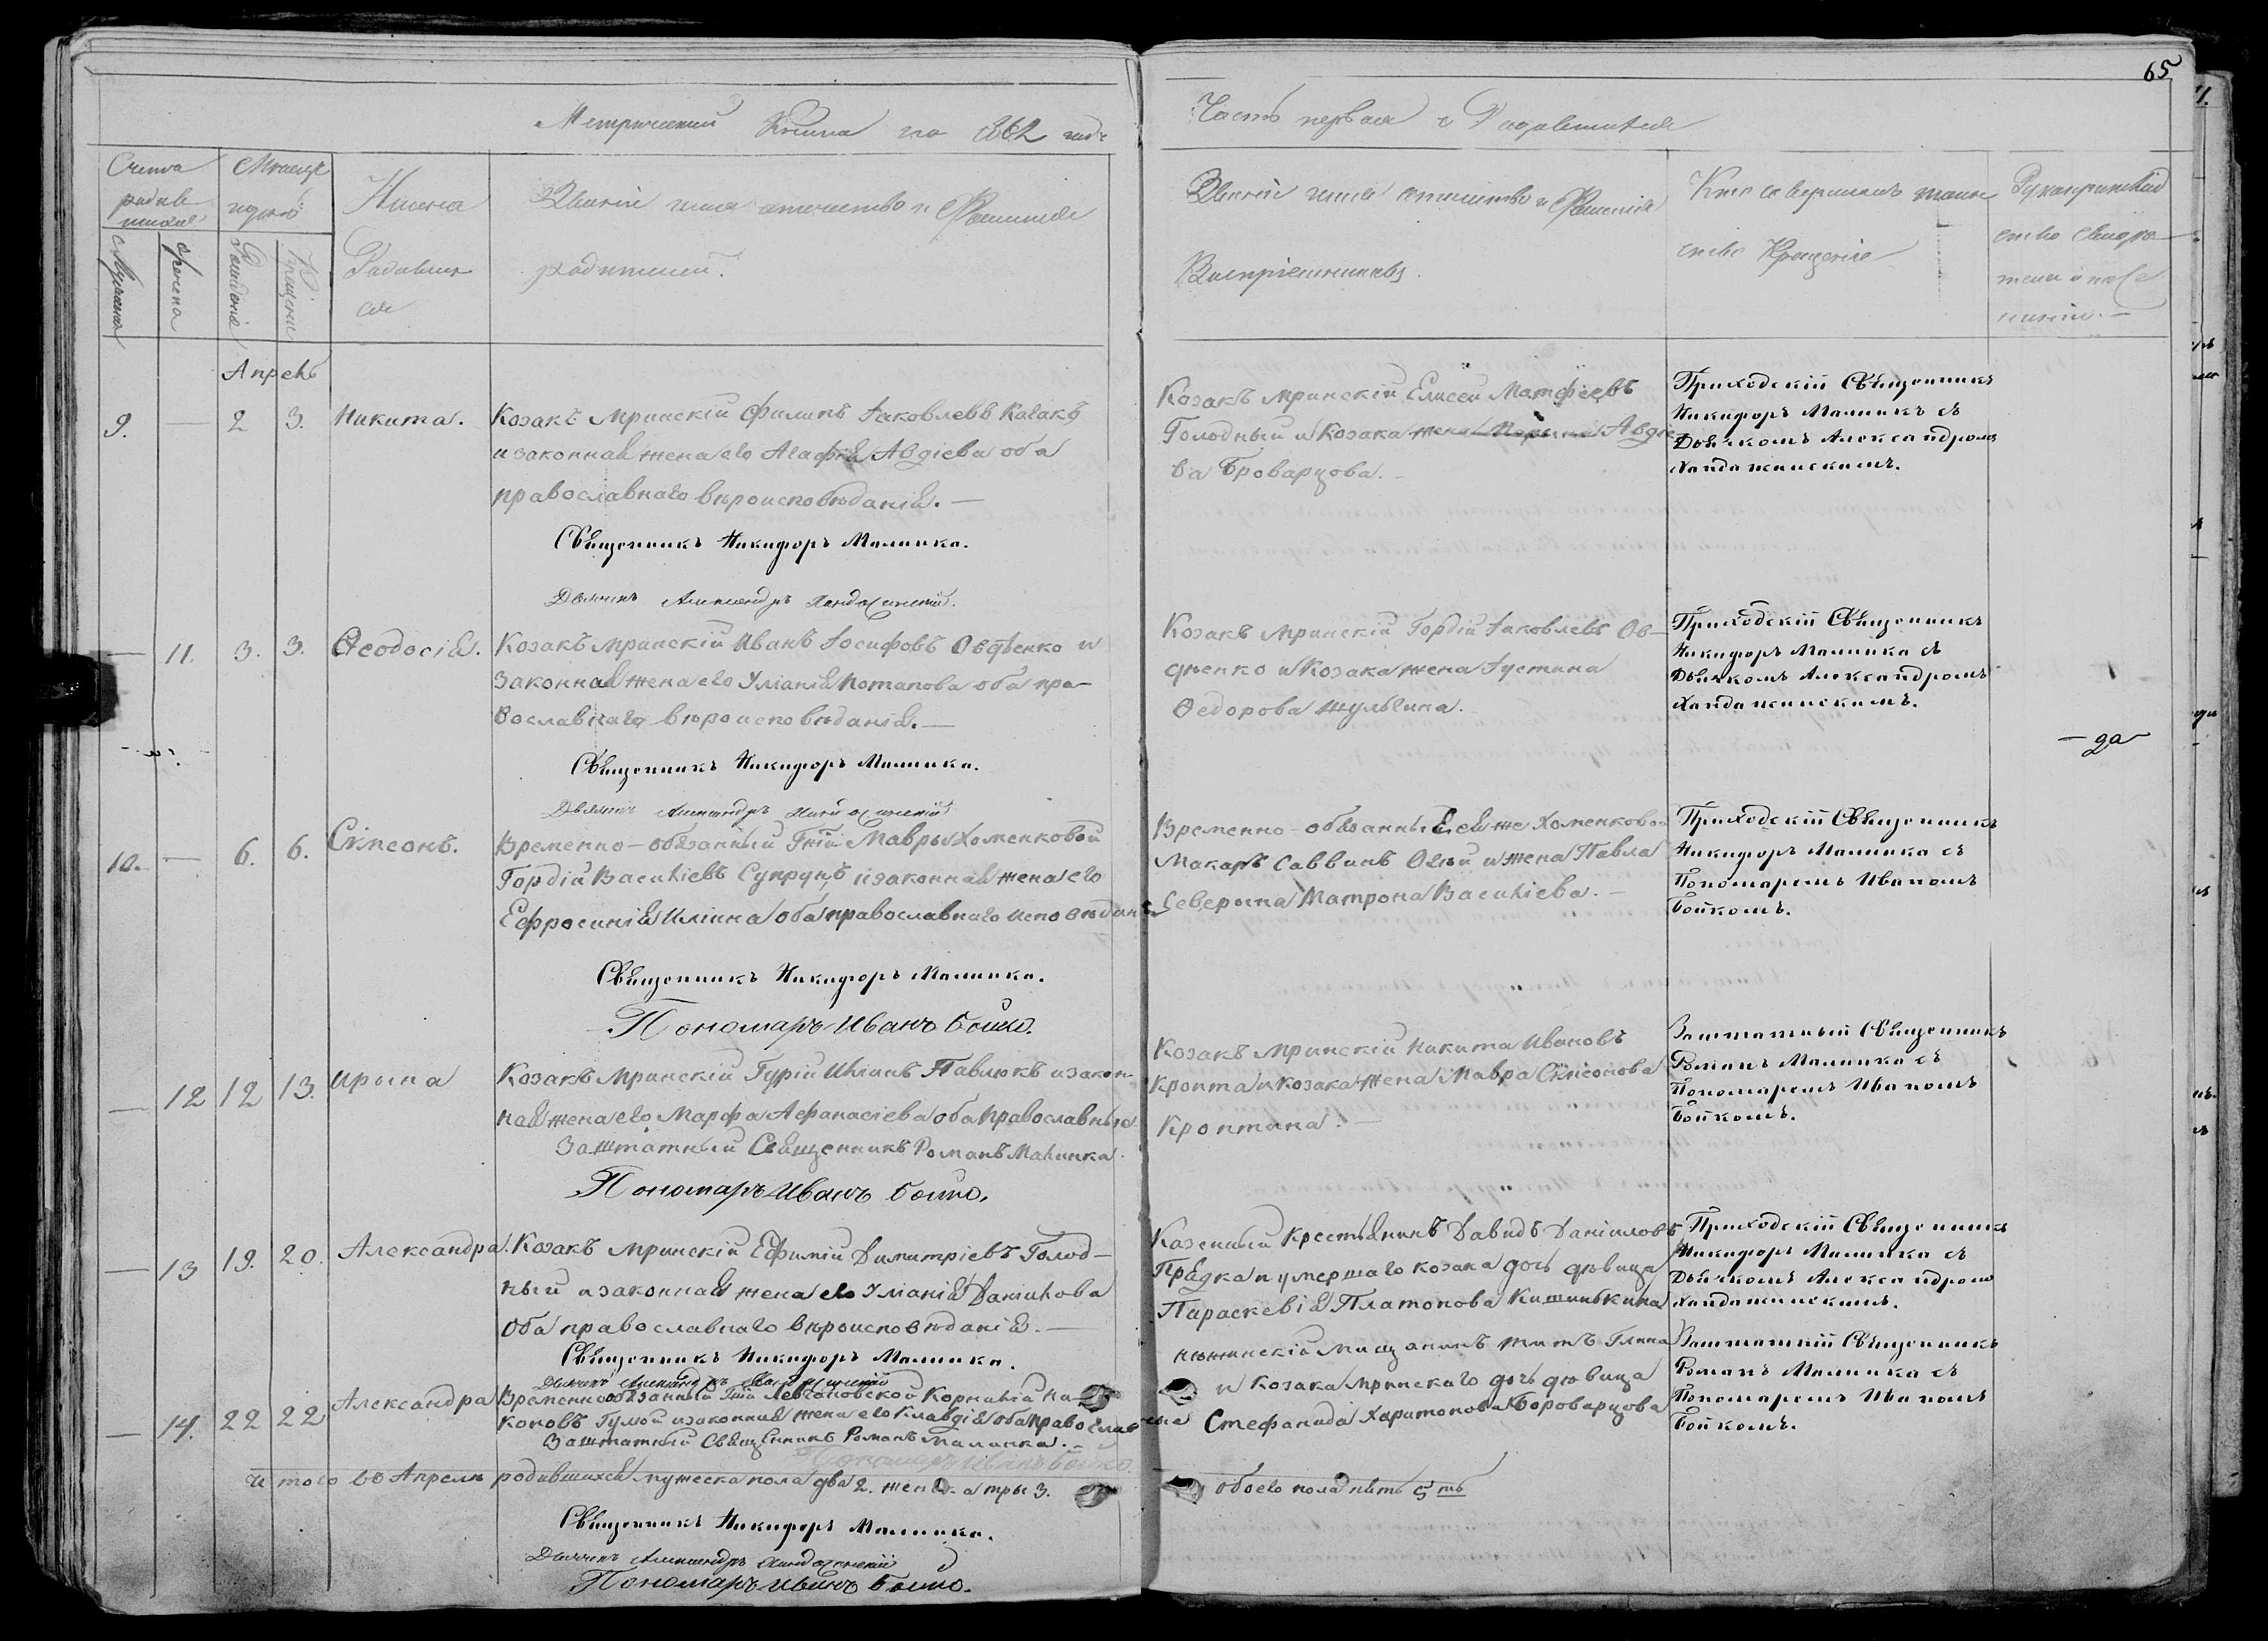 65
Метрической Книги на 1862 годъ
Часть первая о Родившихся
Счетъ родив-шихся
Мѣсяцъ и день
Имена Родивших-ся
Званіе имя отчество и Фамилія родителей.
Званіе имя отчество и Фамилія Воспріемниковъ.
Кто совершалъ таин-ство Крещенія
Рукоприкладство свидѣ-телей
Мужеска
Женска
Рожденія
Крещенія
Апрель
9. — 2 3. Никита.
Козакъ Мринскій Филипъ Іаковлевъ Казакъ
и законная жена его Агафія Авдіева оба
православнаго вѣроисповѣданія. —
Священникъ Никифоръ Малинка.
Дьячекъ Александръ
Козакъ Мринскій Елисей Матфѣевъ
Голодный и Козака жена Авдіе-
ва Броварцова. —
Приходскій Священникъ
Никифоръ Малинка съ
Дьячкомъ Александромъ
— 11. 3. 3. Ѳеодосія.
Козакъ Мринскій Иванъ Іосифовъ Овдѣенко и
законная жена его Уліанія Потапова оба пра-
вославнаго вѣроисповѣданія. —
Священникъ Никифоръ Малинка.
Дьячекъ Александръ
Козакъ Мринскій Гордій Іаковлевъ Ов-
дѣенко и Козака жена Іустина
Ѳедорова Шульгина.
Приходскій Священникъ
Никифоръ Малинка съ
Дьячкомъ Александромъ
— да
10. — 6. 6. Сѵмеонъ.
Временно-обязанный Гжи Мавры Хоменковой
Гордій Василіевъ Супрунъ и законная жена его
Ефросинія Иліина оба православнаго исповѣданія
Священникъ Никифоръ Малинка.
Пономарь Иванъ Бойко.
Временно-обязанный ея же Хоменковой
Макаръ Саввинъ Огій и жена Павла
Северина Матрона Василіева. —
Приходскій Священникъ
Никифоръ Малинка съ
Пономаремъ Иваномъ
Бойкомъ.
— 12 12 13. Ирина
Козакъ Мринскій Гурій Иліинъ Павлюкъ и закон-
ная жена его Марфа Афанасіева оба православные
Заштатный Священникъ Романъ Малинка.
Пономарь Иванъ Бойко.
Козакъ Мринскій Никита Ивановъ
Кропта и козака жена Мавра Сѵмеонова
Кроптина. —
Заштатный Священникъ
Романъ Малинка съ
Пономаремъ Иваномъ
Бойкомъ.
— 13 19. 20. Александра.
Козакъ Мринскій Ефимій Димитріевъ Голод-
ный и законная жена его Уліанія Данилова
оба православнаго вѣроисповѣданія. —
Священникъ Никифоръ Малинка.
Дьячекъ Александръ
Казенный Крестьянинъ Давидъ Даніиловъ
Прядка и умершаго козака дочь дѣвица
Параскевія Платонова Кишинькина
Приходскій Священникъ
Никифоръ Малинка съ
Дьячкомъ Александромъ
— 14. 22 22 Александра
Временнообязанный Гжи Левчановской Корнилій Ни-
коновъ Гумой и законная жена его Клавдія оба православ-ные
Заштатный Священникъ Романъ Малинка. —
Пономарь Иванъ Бойко.
Нѣжинскій Мищанинъ Титъ Глина
и Козака Мринскаго дочь дѣвица
Стефанида Харитонова Броварцова
Заштатный Священникъ
Романъ Малинка съ
Пономаремъ Иваномъ
Бойкомъ.
Итого въ Апрелѣ родившихся мужеска пола два 2. женска три 3. обоего пола пять 5ть
Священникъ Никифоръ Малинка.
Дьячекъ Александръ
Пономарь Иванъ Бойко.